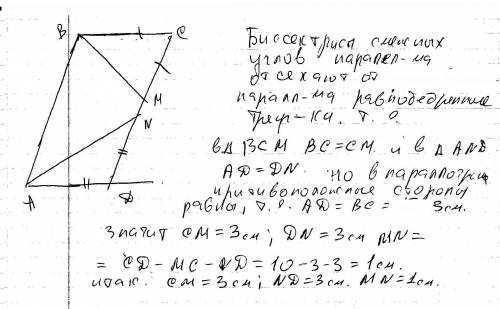 B
C
M
N
A
D
Биссектрисы смежных
углов паралел-ма
отсекают от
паралл-ма равнобедренные
треуг-ки. т. о.
в Δ BCM BC=CM и в Δ AND
AD=DN. но в параллогр
противоположные стороны
равны, т.о. AD=BC= 3см.
значит CM=3см; DN=3см MN=
= CD-MC-ND=10-3-3=1см.
итак: CM=3см; ND=3см. MN=1см.